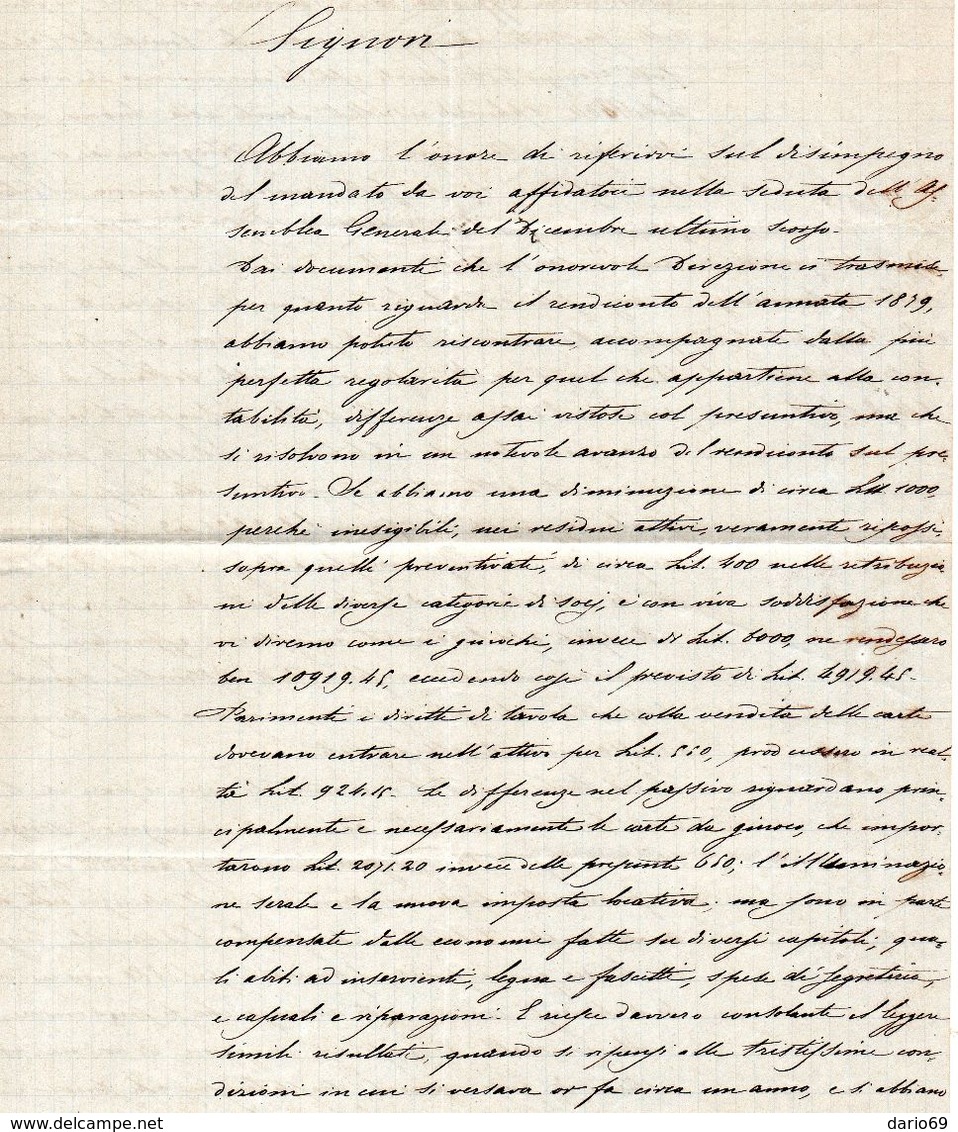 Signori
Abbiamo l'onore di riferirvi sul disimpegno
del mandato da voi affidatoci nella seduta dell'As-
semblea Generale del Dicembre ultimo scorso.
Dai documenti che l'onorevole Direzione ci trasmise,
per quanto riguarda il rendiconto dell'annata 1879,
abbiamo potuto riscontrare, accompagnate dalla più
perfetta regolarità per quel che appartiene alla con-
tabilità, differenze assai vistose col presuntivo, ma che
si risolvono in un notevole avanzo del rendiconto sul pre-
suntivo. Se abbiamo una diminuzione di circa Lit. 1000,
perchè inesigibili, nei residui attivi, veramente riscossi,
sopra quelli preventivati, di circa Lit. 400 nelle retribuzio
ni delle diverse categorie di socj, è con viva soddisfazione che
vi diremo come i giuochi, invece di Lit. 6000, ne rendessero
ben 10919.45, eccedendo così il previsto di Lit. 4919.45.
Parimenti i diritti di tavola che colla vendita delle carte
dovevano entrare nell'attivo per Lit. 550, produssero in real-
tà Lit. 924.15. Le differenze nel passivo riguardano prin-
cipalmente e necessariamente le carte da giuoco, che impor-
tarono Lit. 2071.20 invece delle presunte 650; l'illuminazio-
ne serale e la nuova imposta locativa; ma sono in parte
compensate dalle economie fatte su diversi capitoli; qua-
li abiti ad inservienti, legna e fascetti, spese di segreteria,
e casuali e riparazioni. E riesce davvero consolante il leggere
simili risultati, quando si ripensi alle tristissime con-
dizioni in cui si versava or fa circa un anno, e si abbiano
delcampe.net
dario69